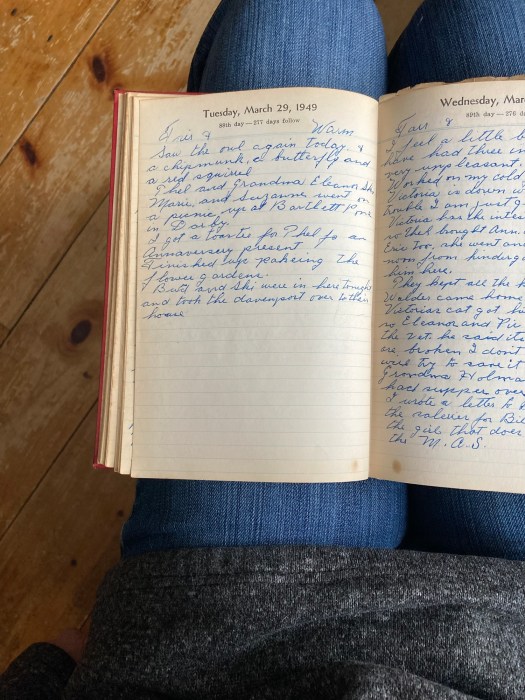 Tuesday, March 29, 1949
88th day — 277 days follow
Fair & Warm
Saw the owl again today &
a chipmunk, a butterfly and
a red squirrel
Phel and Grandma Eleanor Ski
Marie, and Suzanne went on
a picnic, up at Bartlett Pond
in Darby
I got a toaster for Phel for an
Annaversery present
Finished
flower gardens.
and Ski were in here tonight
and took the davenport over to their
house
Wednesday, Mar
89th day — 276 d
Fair &
I feel a little b
have had three in
very unpleasant.
Worked on my cold
Victoria is down w
trouble I am just g
Victoria has the intes
so Phel bought Ann.
Eric too, she went an
noon from kinderg
him here.
They kept all the
came home
Victorias cat got hi
so Eleanor and
the vet. he said its
are broken I dont
will try to save it
Grandma Holma
had supper over
I wrote a letter to
the for Bil
the girl that does
the M.A.S.